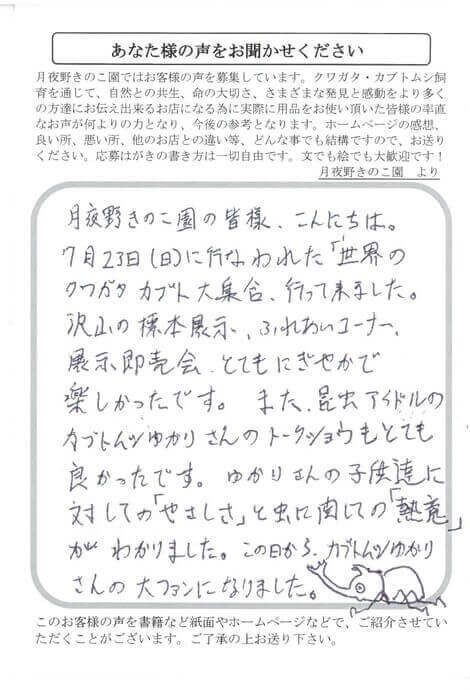 あなた様の声をお聞かせください
月夜野きのこ園ではお客様の声を募集しています。クワガタ・カブトムシ飼
育を通じて、自然との共生、命の大切さ、さまざまな発見と感動をより多く
の方達にお伝え出来るお店になる為に実際に用品をお使い頂いた皆様の率直
なお声が何よりの力となり、今後の参考となります。ホームページの感想、
良い所、悪い所、他のお店との違い等、どんな事でも結構ですので、お送り
ください。応募はがきの書き方は一切自由です。文でも絵でも大歓迎です！
月夜野きのこ園　より
月夜野きのこ園の皆様、こんにちは。
7月23日(日)に行なわれた「世界の
クワガタ カブト大集合、行って来ました。
沢山の標本展示、ふれあいコーナー、
展示即売会、とてもにぎやかで
楽しかったです。また、昆虫アイドルの
カブトムシゆかりさんのトークショウもとても
良かったです。ゆかりさんの子供達に
対しての「やさしさ」と虫に関しての「熱意」
がわかりました。この日から、カブトムシゆかり
さんの大ファンになりました。
このお客様の声を書籍など紙面やホームページなどで、ご紹介させてい
ただくことがございます。ご了承の上お送り下さい。